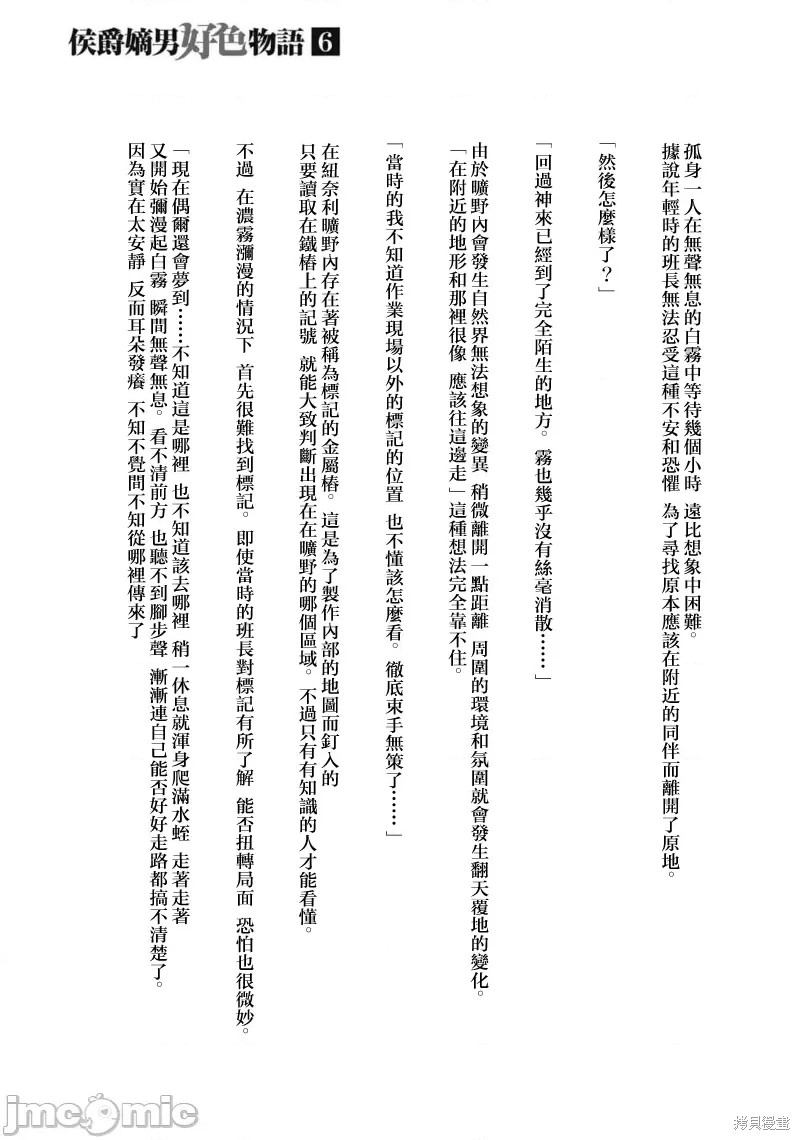 侯爵嫡男好色物語 6
孤身一人在無聲無息的白霧中等待幾個小時 遠比想象中困難。
據說年輕時的班長無法忍受這種不安和恐懼 為了尋找原本應該在附近的同伴而離開了原地。
「然後怎麼樣了？」
「回過神來已經到了完全陌生的地方。霧也幾乎沒有絲毫消散……」
由於曠野內會發生自然界無法想象的變異 稍微離開一點距離 周圍的環境和氛圍就會發生翻天覆地的變化。
「在附近的地形和那裡很像 應該往這邊走」這種想法完全靠不住。
「當時的我不知道作業現場以外的標記的位置 也不懂該怎麼看。徹底束手無策了……」
在紐奈利曠野內存在著被稱為標記的金屬樁。這是為了製作內部的地圖而釘入的
只要讀取在鐵樁上的記號 就能大致判斷出現在在曠野的哪個區域。不過只有有知識的人才能看懂。
不過 在濃霧瀰漫的情況下 首先很難找到標記。即使當時的班長對標記有所了解 能否扭轉局面 恐怕也很微妙。
「現在偶爾還會夢到……不知道這是哪裡 也不知道該去哪裡 稍一休息就渾身爬滿水蛭 走著走著
又開始彌漫起白霧 瞬間無聲無息。看不清前方 也聽不到腳步聲 漸漸連自己能否好好走路都搞不清楚了。
因為實在太安靜 反而耳朵發癢 不知不覺間不知從哪裡傳來了
jmcomic
拷貝漫畫